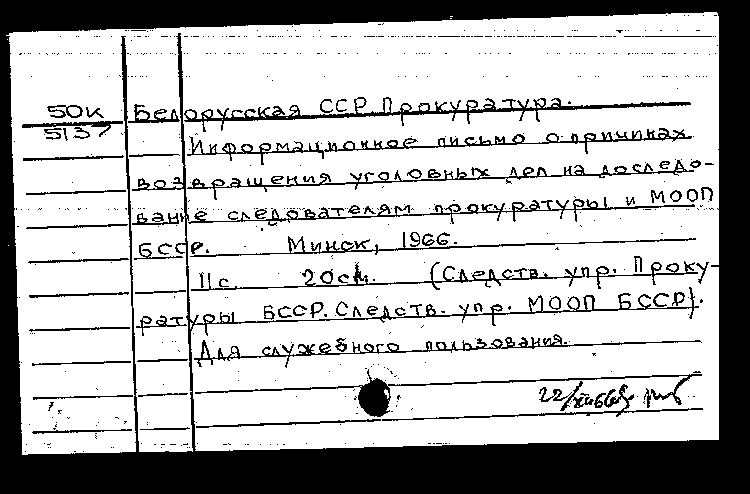 50к
5137
Белорусская ССР Прокуратура.
Информационное письмо о причинах
возвращения уголовных дел на доследо-
вание следователям прокуратуры и МООП
БССР. Минск, 1966.
11с 20см. (Следств. упр. Проку-
ратуры БССР. Следств. упр. МООП БССР).
Для служебного пользования.
22/